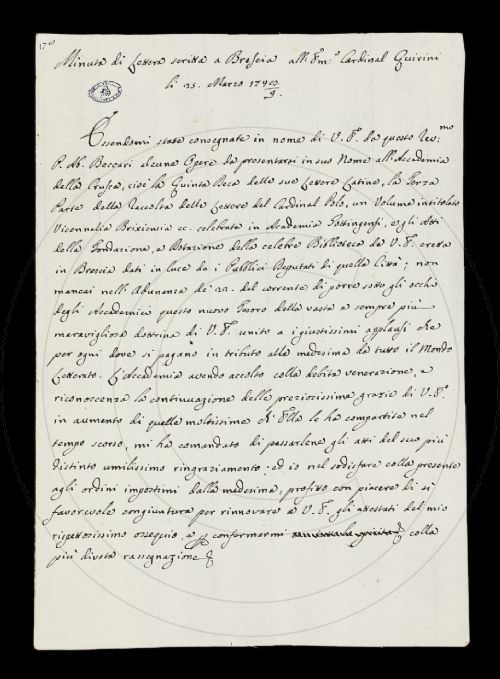 Minuta di Lettera scritta a Brescia all' Em.o Cardinal Quirini
li 25. Marzo 1749
Essendomi state consegnate in nome di V. E. da questo Rev:mo
P. Ab. Beccari alcune Opere da presentarsi in suo Nome all'Accademia
della Crusca, cioè la Quinta Deca delle sue Lettere Latine, la Terza
Parte della Raccolta delle Lettere del Cardinal Polo, un Volume intitolato
Vicennalia Brixiensia ec. celebrata in Academia Gottingensi, e gli Atti
della Fondazione, e Dotazione della celebre Biblioteca da V. E. eretta
in Brescia dati in luce da i Pubblici Deputati di quella Città; non
mancai nell'Adunanza de' 22. del corrente di porre sotto gli occhi
degli Accademici questo nuovo Tesoro della vasta e sempre più
maravigliosa dottrina di V. E. unito a i giustissimi applausi che
per ogni dove si pagano in tributo alla medesima da tutto il Mondo
Letterato. L'Accademia avendo accolto colla debita venerazione, e
riconoscenza la continuazione delle preziosissime grazie di V. E.
in aumento di quelle moltissime ch' Ella le ha compartite nel
tempo scorso, mi ha comandato di passarlene gli atti del suo più
distinto umilissimo ringraziamento. ed io nel sodisfare colla presente
agli ordini impostimi dalla medesima, profitto con piacere di sì
favorevole congiuntura per rinnovare a V. E. gli attestati del mio
rispettosissimo ossequio, e confermarmi colla
più divota rassegnazione